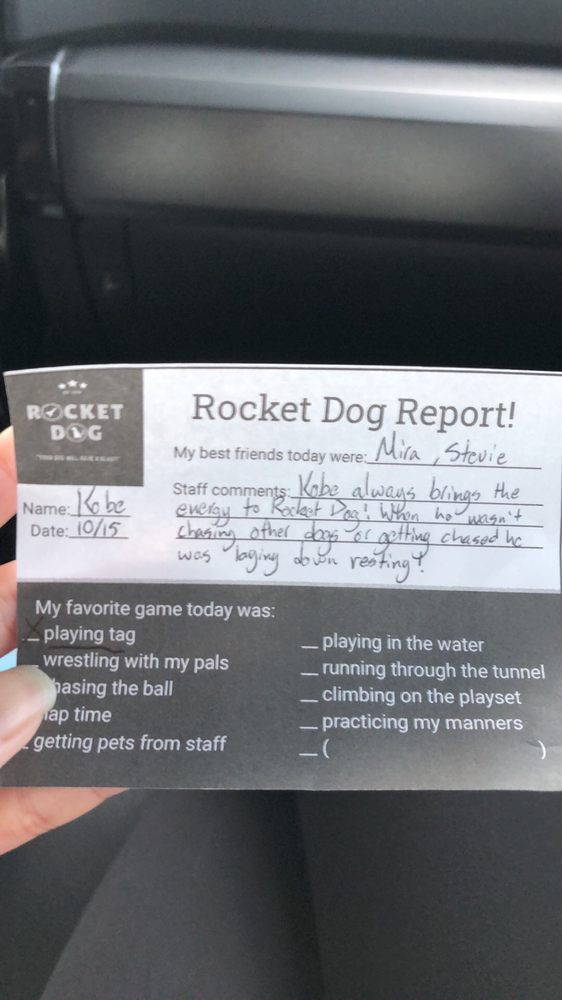 ROCKET
DOG
"YOUR DOG WILL HAVE A BLAST!"
Rocket Dog Report!
My best friends today were: Mira, Stevie
Name: Kobe
Date: 10/15
Staff comments: Kobe always brings the
energy to Rocket Dog! When he wasn't
chasing other dogs or getting chased he
was laying down resting!
My favorite game today was:
X playing tag
wrestling with my pals
hasing the ball
ap time
getting pets from staff
playing in the water
running through the tunnel
climbing on the playset
practicing my manners
( )